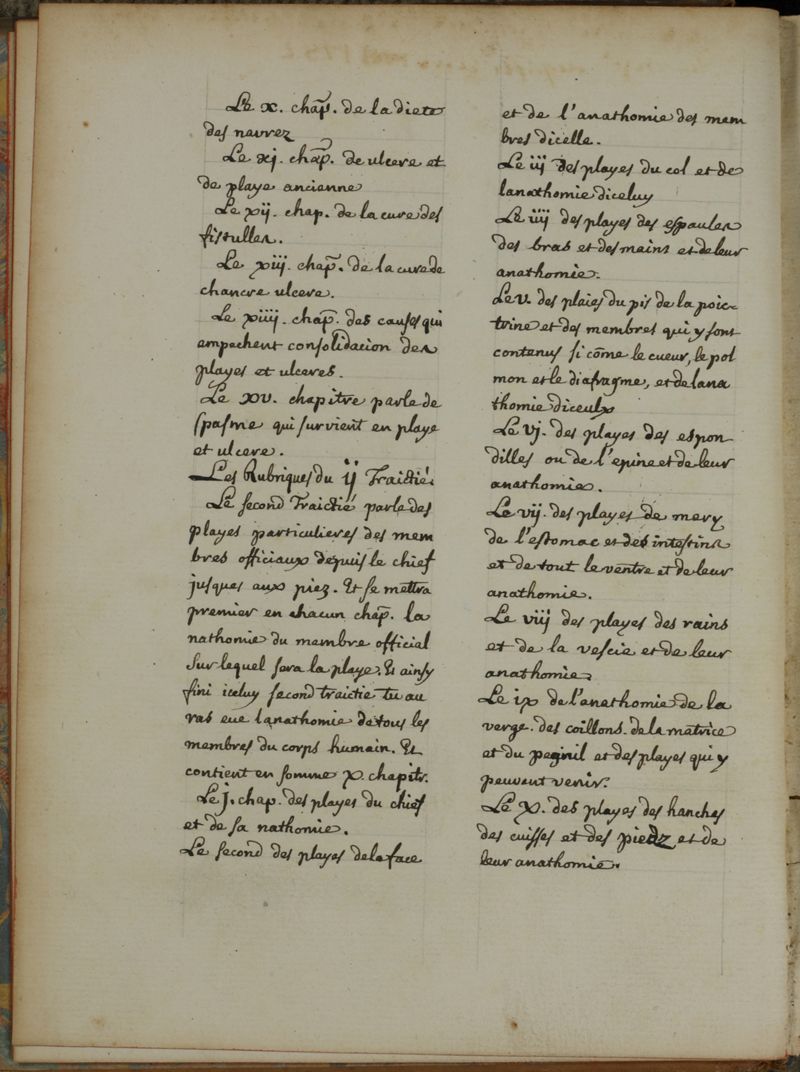 Le x. chap̃. de la diete
des navrez
Le xj. chap̃. de ulcere et
de playe ancienne
Le xij. chap. de la cure des
fistulles.
Le xiij. chap̃. de la cure de
chancre ulcere.
Le xiiij. chap̃. des causes qui
empechent consolidacion des
playes et ulceres.
Le XV. chapitre parle de
spasme qui survient en playe
et ulcere.
Les Rubriques du ij Traictié.
Le second Traictié parle des
playes particulieres des mem
bres officiaux depuis le chief
jusques aux piez. Et se mettra
premier en chacun chap̃. la
nathomie du membre official
Sur lequel sera la playe. Et ainsy
fini iceluy second traictie tu au
ras eue lanathomie de tous les
membres du corps humain. Et
contient en somme x. chapitr.
Le j. chap. des playes du chief
et de sa nathomie.
Le second des playes de la face
et de l'anathomie des mem
bres dicelle.
Le iij des playes du col et de
lanathomie diceluy
Le iiij des playes des espaules
des bras et des mains et de leur
anathomie.
Le v. des plaies du pis de la poic-
trine et des membres qui y sont
contenus si côme le cueur, le pol
mon et le diafragme, et de lana
thomie diceulx
Le vj. des playes des espon-
dilles ou de l'epine et de leur
anathomie.
Le vij. des playes de mery
de l'estomac et des intestins
et de tout le ventre et de leur
anathomie.
Le viij des playes des rains
et de la vescie et de leur
anathomie
Le ix de l'anathomie de la
verge. des coillons. de la matrice
et du peginil et des playes qui y
peuvent venir.
Le X. des playes des hanches
des cuisses et des piedz et de
leur anathomie.